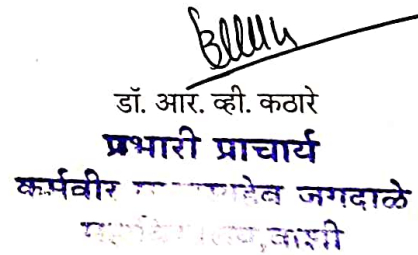 डॉ. आर. व्ही. कठारे
प्रभारी प्राचार्य
कर्मवीर जगदाळे
वाशी